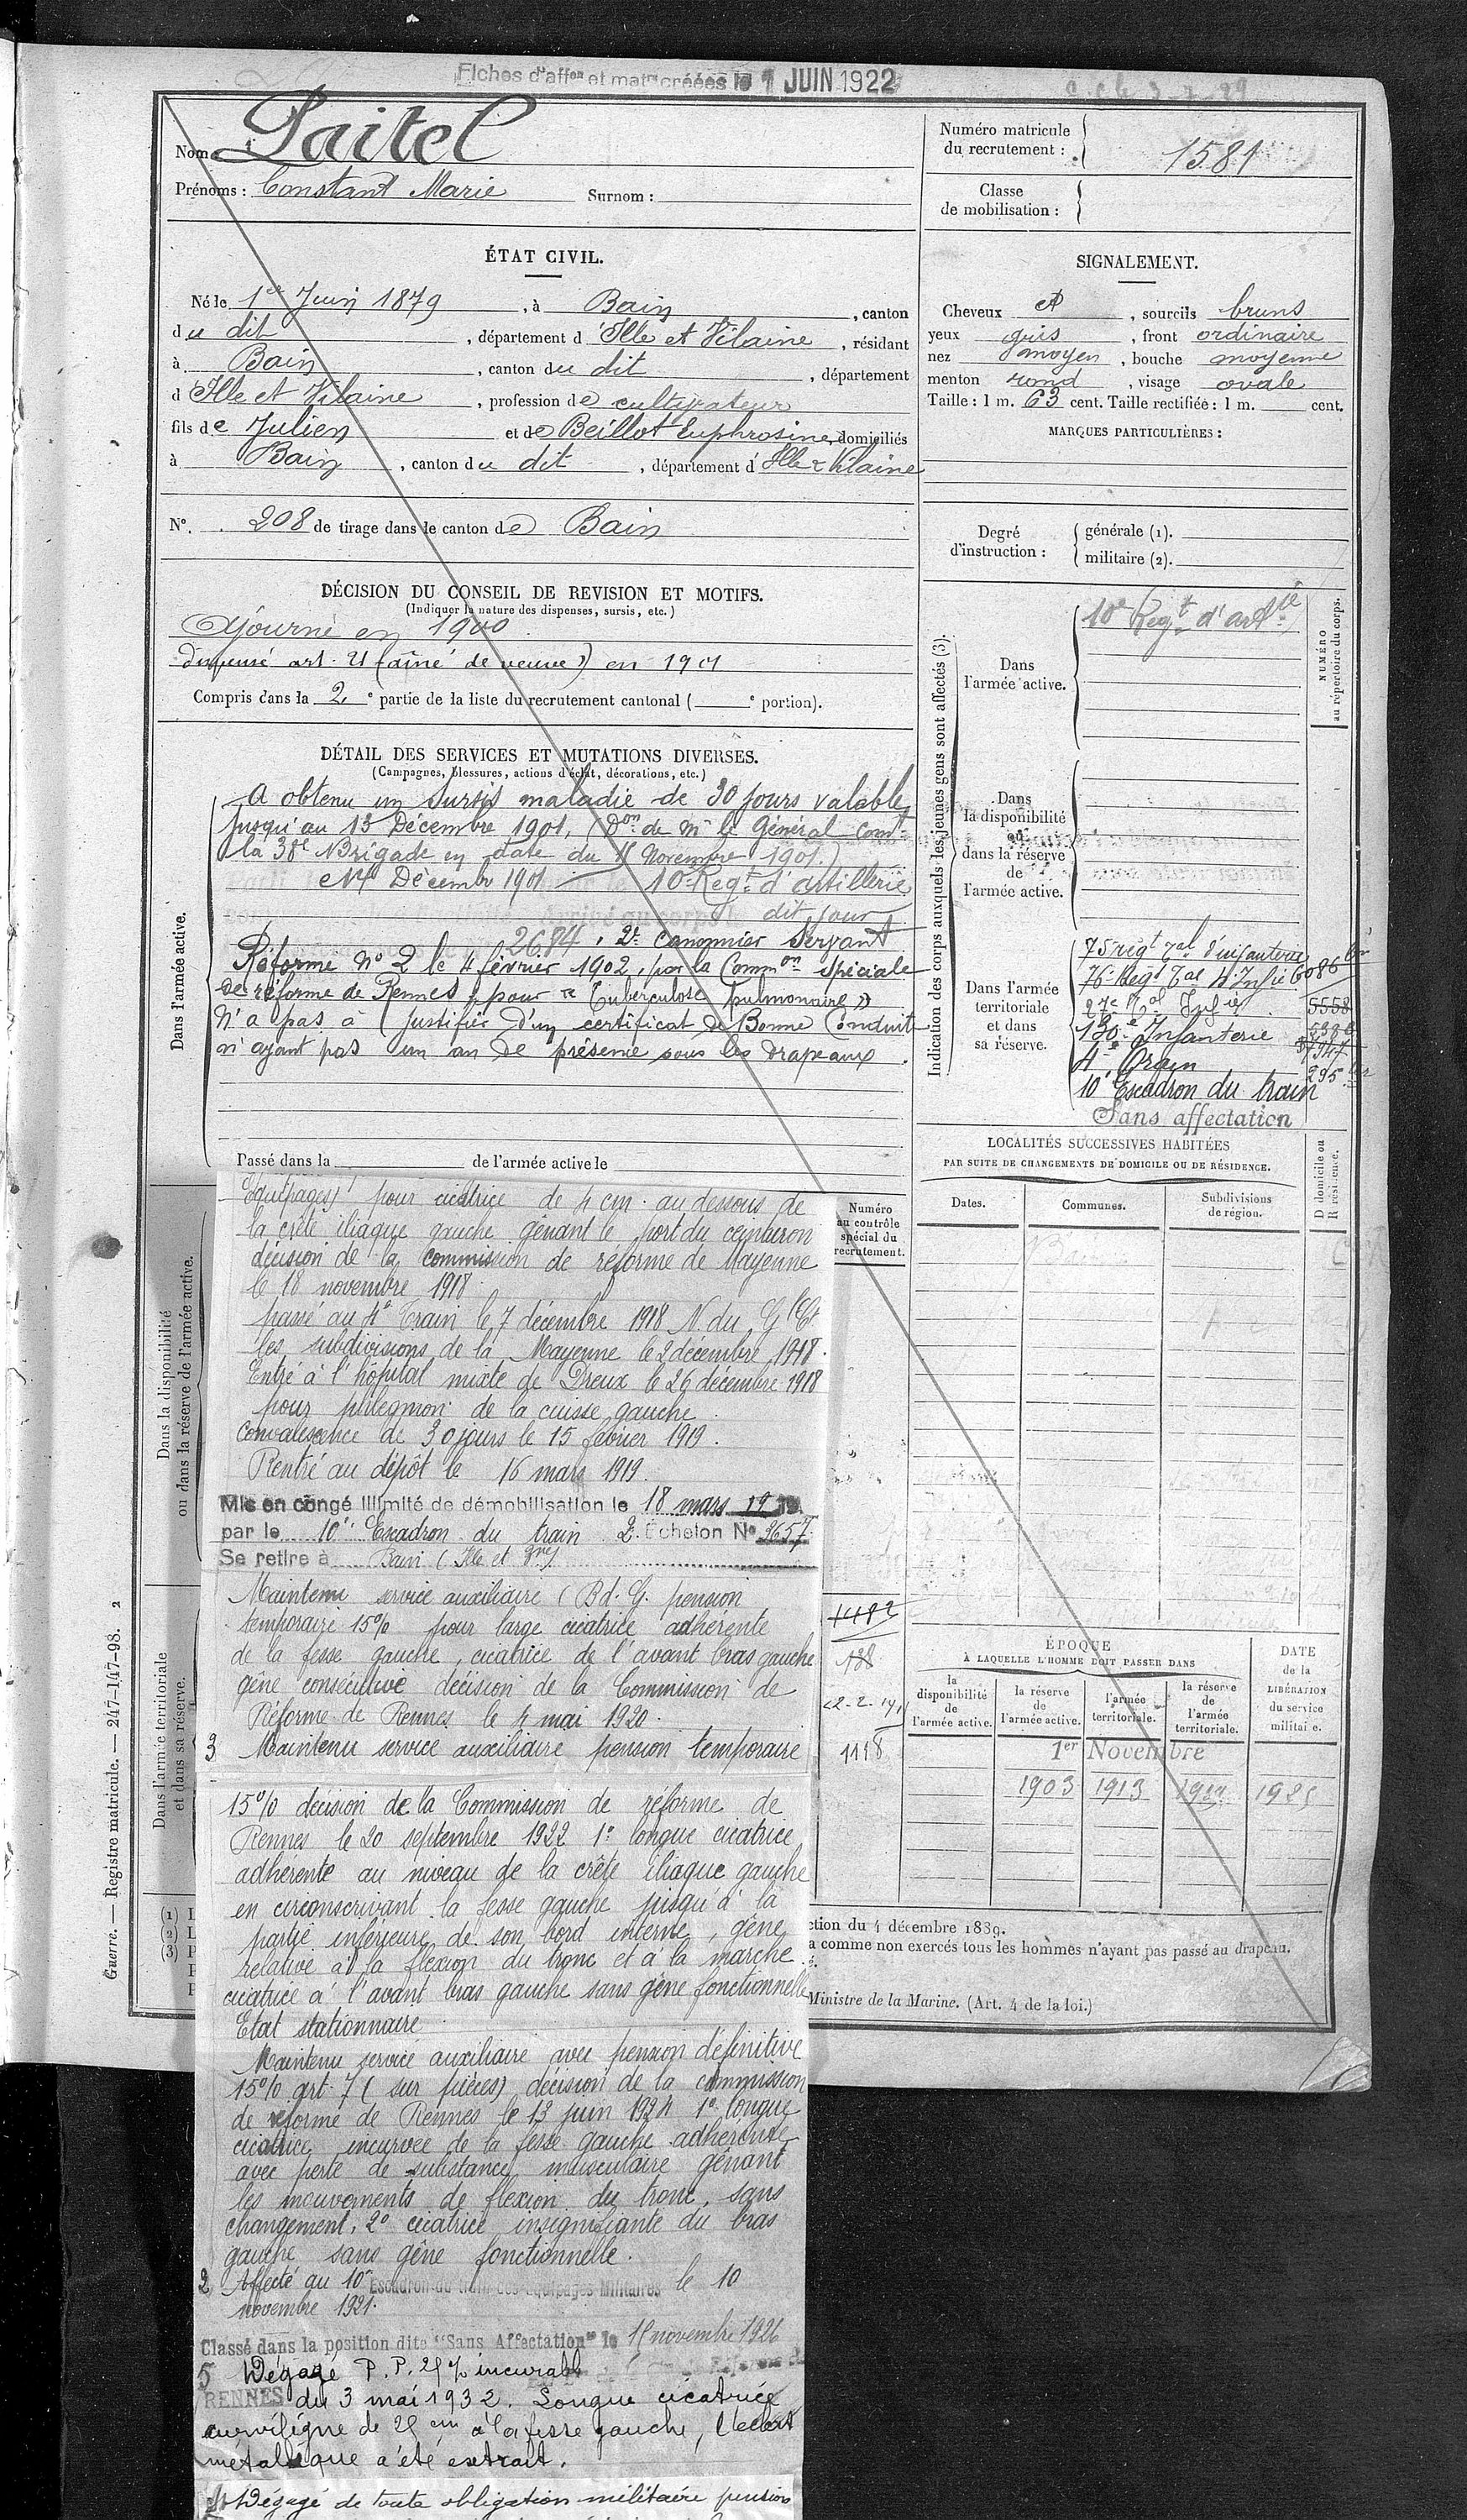 Fiches d'affon et matre créées le 1 JUIN 1922
Nom : Laitel
Prénoms : Constant Marie Surnom :
Numéro matricule
du recrutement : 1581
Classe
de mobilisation :
ÉTAT CIVIL.
Né le 1er Juin 1879, à Bain, canton
du dit, département d'Ille et Vilaine, résidant
à Bain, canton du dit, département
d Ille et Vilaine, profession de cultivateur
fils de Julien et de Beillot Euphrosine, domiciliés
à Bain, canton du dit, département d'Ille & Vilaine
N°. 208 de tirage dans le canton de Bain
SIGNALEMENT.
Cheveux, sourcils bruns
yeux gris, front ordinaire
nez moyen, bouche moyenne
menton rond, visage ovale
Taille : 1 m. 63 cent. Taille rectifiée : 1 m. cent.
MARQUES PARTICULIÈRES :
Degré
d'instruction :
générale (1).
militaire (2).
DÉCISION DU CONSEIL DE REVISION ET MOTIFS.
(Indiquer la nature des dispenses, sursis, etc.)
Ajourné en 1900
dispensé art. 21 (aîné de veuve) en 1901
Compris dans la 2e partie de la liste du recrutement cantonal ( e portion).
DÉTAIL DES SERVICES ET MUTATIONS DIVERSES.
(Campagnes, blessures, actions d'éclat, décorations, etc.)
Dans l'armée active.
A obtenu un sursis maladie de 30 jours valable
jusqu'au 13 Décembre 1901, (Don de Mr le Général Comt
la 38e Brigade en date du Novembre 1901.)
Décembre 1901 10e Regt d'artillerie
dit jour
2684, 2e Canonnier Servant
Réformé N° 2 le 4 février 1902, par la Common spéciale
de réforme de Rennes, pour "Tuberculose pulmonaire"
N'a pas à justifier d'un certificat de Bonne Conduite
n'ayant pas un an de présence sous les drapeaux.
Passé dans la de l'armée active le
Indication des corps auxquels les jeunes gens sont affectés (3).
NUMÉRO
au répertoire du corps.
Dans
l'armée active.
10e Regt d'artie
Dans
la disponibilité
ou
dans la réserve
de
l'armée active.
Dans l'armée
territoriale
et dans
sa réserve.
75 régt Tal d'infanterie
76e Regt Tal d'Infie 6086
27e Tal Infie 5558
130e Infanterie
4e Train
10e Escadron du train
Sans affectation
LOCALITÉS SUCCESSIVES HABITÉES
PAR SUITE DE CHANGEMENTS DE DOMICILE OU DE RÉSIDENCE.
Dates. Communes. Subdivisions
de région.
D domicile ou
R résidence.
Numéro
au contrôle
spécial du
recrutement.
Dans la disponibilité
ou dans la réserve de l'armée active.
Équipages) pour cicatrice de 4 cm. au dessous de
la crête iliaque gauche gênant le port du ceinturon
décision de la commission de réforme de Mayenne
le 18 novembre 1918.
passé au 4e Train le 7 décembre 1918 N. du Gl Ct
les subdivisions de la Mayenne le 2 décembre 1918.
Entré à l'hôpital mixte de Dreux le 26 décembre 1918
pour phlegmon de la cuisse gauche.
Convalescence de 30 jours le 15 février 1919.
Rentré au dépôt le 16 mars 1919.
Mis en congé illimité de démobilisation le 18 mars 1919.
par le 10e Escadron du train 2e Echelon N° 2657
Se retire à Bain (Ille et Vne)
Dans l'armée territoriale
et dans sa réserve.
Maintenu service auxiliaire (Bd. G. pension
temporaire 15% pour large cicatrice adhérente
de la fesse gauche, cicatrice de l'avant bras gauche
gêne consécutive décision de la Commission de
Réforme de Rennes le 4 mai 1920.
3 Maintenu service auxiliaire pension temporaire
15% décision de la Commission de réforme de
Rennes le 20 septembre 1922 1° longue cicatrice
adhérente au niveau de la crête iliaque gauche
en circonscrivant la fesse gauche jusqu'à la
partie inférieure de son bord interne, gêne
relative à la flexion du tronc et à la marche.
cicatrice à l'avant bras gauche sans gêne fonctionnelle
Etat stationnaire
Maintenu service auxiliaire avec pension définitive
15% art. 7 (sur pièces) décision de la commission
de réforme de Rennes le 13 juin 1924 1° longue
cicatrice incurvée de la fesse gauche adhérente
avec perte de substance musculaire gênant
les mouvements de flexion du tronc, sans
changement, 2° cicatrice insignifiante du bras
gauche sans gêne fonctionnelle.
2 Affecté au 10e Escadron du train des équipages Militaires le 10
novembre 1921.
Classé dans la position dite "Sans Affectation" le 15 novembre 1926
5 Dégagé P.P. 25% incurable
RENNES du 3 mai 1932. Longue cicatrice
curviligne de 25 cm à la fesse gauche, l'éclat
métallique a été extrait.
Dégagé de toute obligation militaire pension
1482
138
1118
ÉPOQUE
À LAQUELLE L'HOMME DOIT PASSER DANS
la
disponibilité
de
l'armée active.
la réserve
de
l'armée active.
l'armée
territoriale.
la réserve
de
l'armée
territoriale.
DATE
de la
LIBÉRATION
du service
militaire.
1er Novembre
1903 1913
ction du 4 décembre 1889.
a comme non exercés tous les hommes n'ayant pas passé au drapeau.
Ministre de la Marine. (Art. 4 de la loi.)
(1) L
(2) L
(3) P
Guerre. — Registre matricule. — 247-147-98. 2